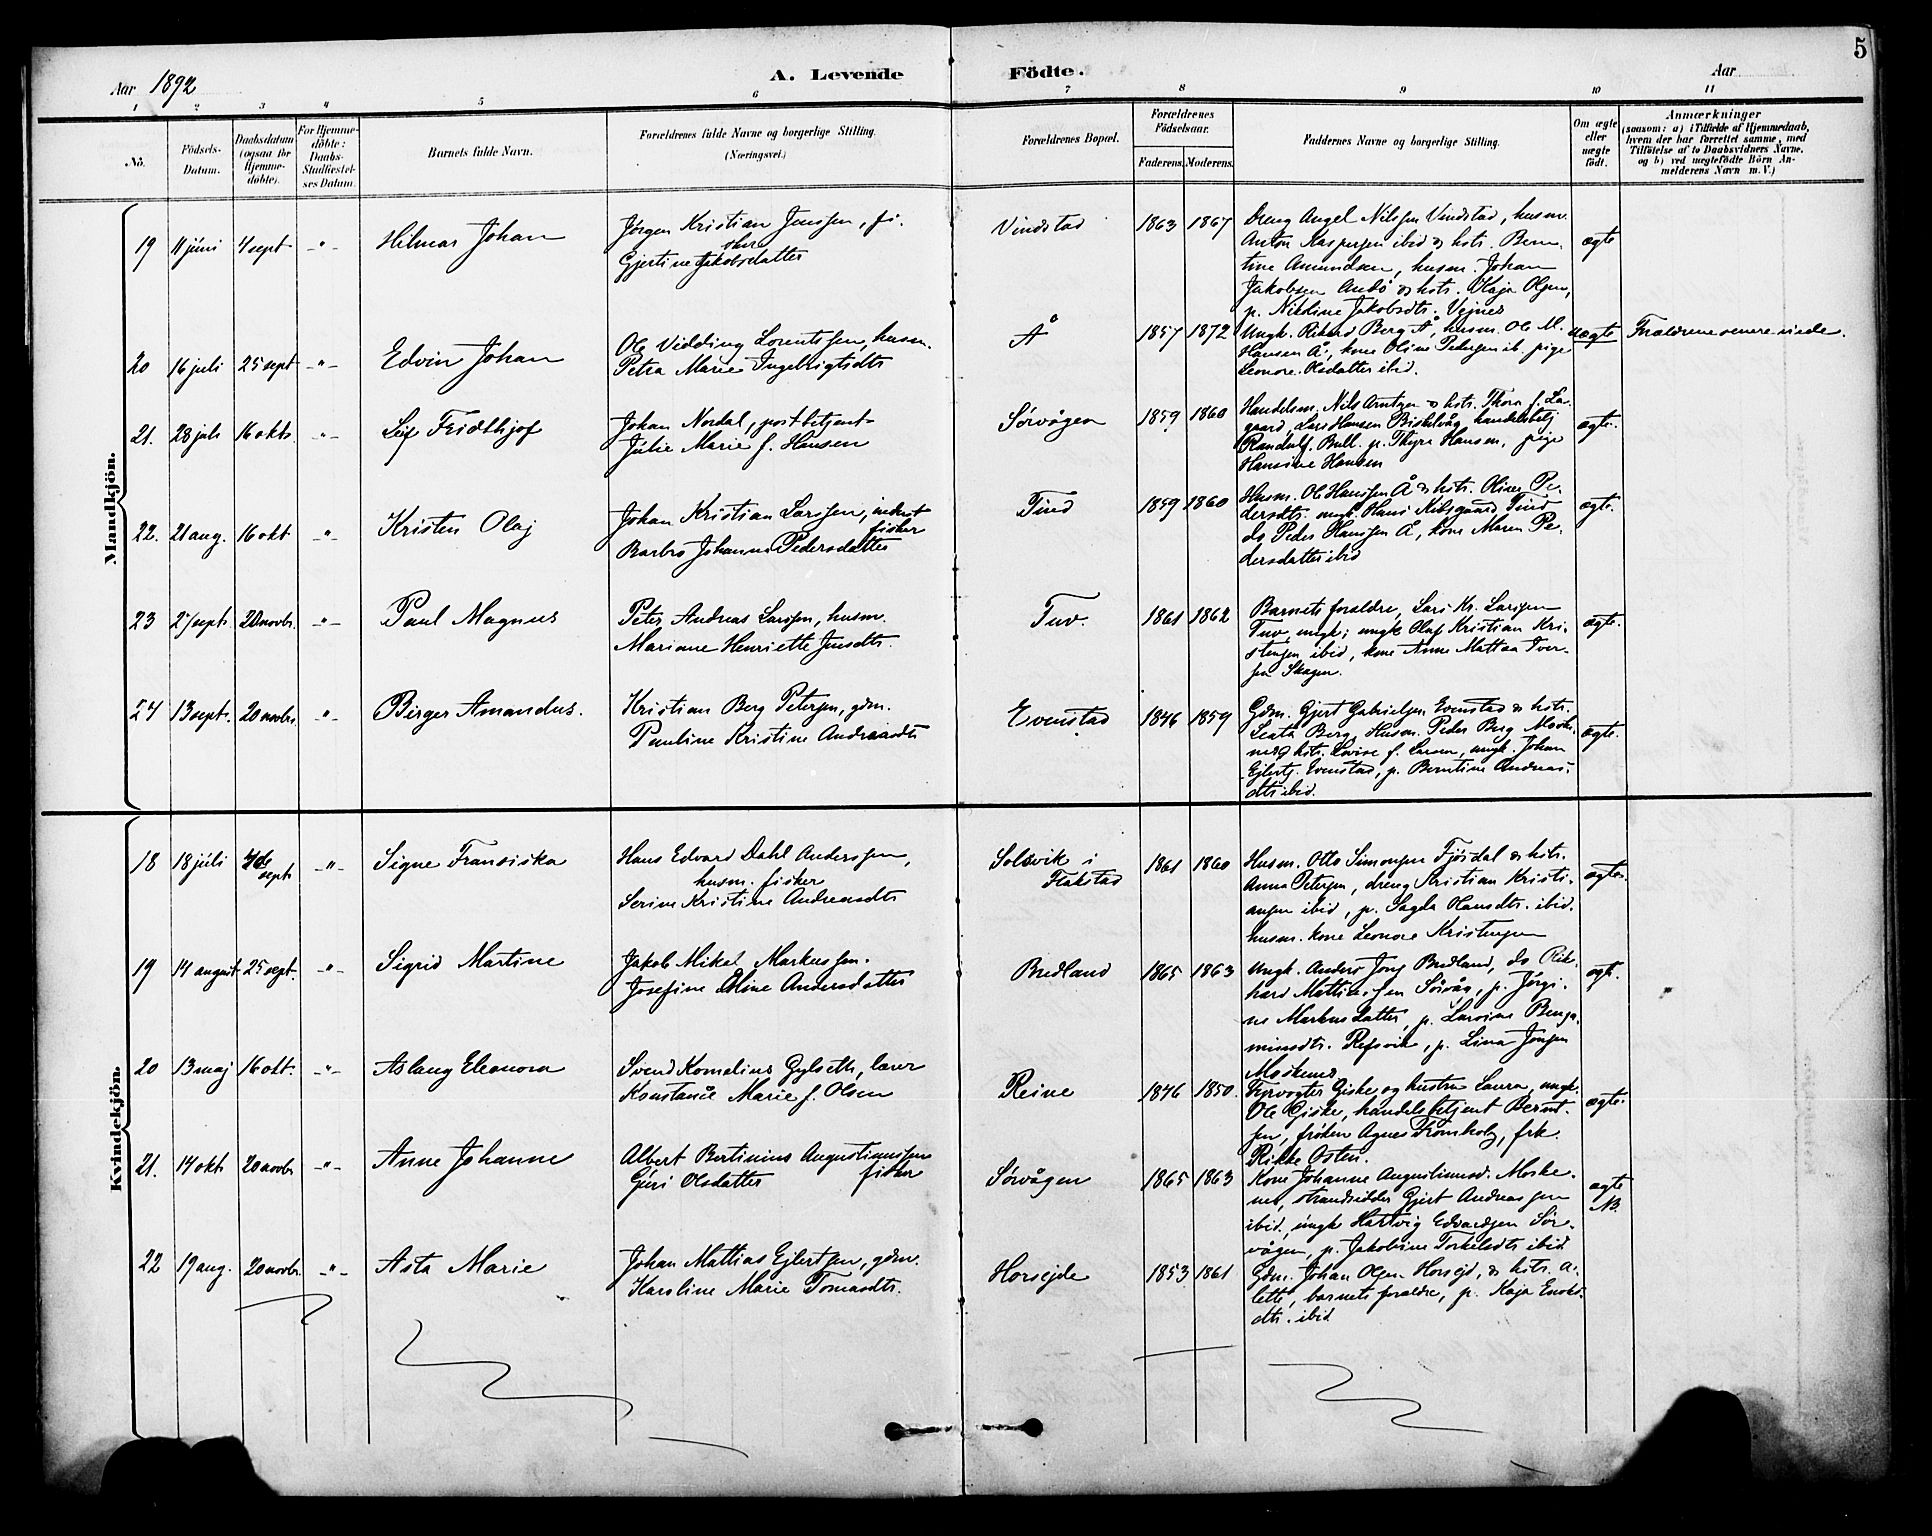 5
Aar 1892
A. Levende Födte.
Aar
1 2 3 4 5 6 7 8 9 10 11
No.
Födsels-Datum.
Daabsdatum (ogsaa for Hjemmedöbte).
For Hjemmedöbte: Daabs-Stadfæstelses Datum.
Barnets fulde Navn.
Forældrenes fulde Navne og borgerlige Stilling. (Næringsvei.)
Forældrenes Bopæl.
Forældrenes Födselsaar.
Faderens. Moderens.
Faddernes Navne og borgerlige Stilling.
Om ægte eller uægte födt.
Anmærkninger
(saasom: a) i Tilfælde af Hjemmedaab, hvem der har forrettet samme, med Tilföielse af to Daabsvidners Navne, og b) ved uægtefödte Börn Anmelderens Navn m. V.)
Mandkjön.
19 11 juni 4 sept -"- Hilmar Johan
Jørgen Kristian Jenssen, fisker
Gjertine Jakobsdatter
Vindstad 1863 1867
Dreng Angel Nilssen Vindstad, husm.
Anton Kaspersen ibid & hstr. Berntine Amundsen, husm. Johan
Jakobsen Andø & hstr. Kaja Olsen,
p. Nikoline Jakobsdtr. Vejnes
ægte
20 16 juli 25 sept -"- Edvin Johan
Ole Vidding Lorentssen, husm.
Petra Marie Ingebrigtsdtr
Å 1857 1872
Ungk. Rikard Berg Å, husm. Ole M.
Hansen Å, kone Oline Pedersen ib. pige
Leonore Olsdatter ibid.
uægte
Forældrene senere viede.
21. 28 juli 16 okt. -"- Leif Fridthjof
Johan Nordal, postbetjent
Julie Marie f. Hansen
Sørvågen 1859 1860
Handelsm. Nils Arntzen & hstr. Thora f. Lorgaard, Lars Hansen handelsbetj
Randulf Bull. p. Thyra Hansen, pige
Hansine Hansen
ægte.
22. 21 aug. 16 okt -"- Kristen Olaj
Johan Kristian Larssen, fisker
Barbro Johanna Pedersdatter
Tind 1859 1860
Husm. Ole Hanssen Å & hstr. Oline Pedersdtr. ungk. Hans Tind
do Peder Hanssen Å, kone Maren Pedersdatter ibid
ægte.
23 27 sept. 20 novbr. -"- Paul Magnus
Peter Andreas Larssen, husm.
Mariane Henriette Jensdtr.
Tuv. 1861 1862
Barnets forældre, Lars Kr. Larssen
Tuv, ungk; ungk Olaf Kristian Kristensen ibid, kone Anne Mattea Iversen Skagen.
ægte.
24 13 sept. 20 novbr. -"- Birger Amandus.
Kristian Berg Petersen, gdm.
Pauline Kristine Andreasdtr
Evenstad 1846 1859
Gdm. Gjert Gabrielsen Evenstad & hstr.
Berg, Husm. Peder Berg Moskenes & hstr. Lovise f. Larsen, ungk. Johan
Ejlertj. Evenstad, p. Berntine Andreasdtr ibid.
ægte.
Kvindekjön.
18 18 juli 4de sept -"- Signe Fransiska
Hans Edvard Dahl Anderssen,
husm. fisker
Serine Kristine Andreasdtr
Solsvik i Flakstad 1861 1860
Husm. Otto Simonsen Fjøsdal & hstr.
Anna Petersen, dreng Kristian Kristiansen ibid, p. Hansdtr. ibid.
husm. kone Leonore Kristensen
ægte.
19 14 august 25 sept. -"- Sigrid Martine
Jakob Mikal Markussen.
Josefine Oline Andersdatter
Bredland 1865 1863
Ungk. Anders Bredland, do Rikhard Sørvåg, p. Jørgine Markusdatter, p. Lavine Benjaminsdtr. Refsvik, p. Lina Jensen
Moskenes
ægt.
20 13 maj 16 okt. -"- Aslaug Eleonora
Svend Kornelius Gylseth, lærer
Konstance Marie f. Olsen
Reine 1846 1850.
Fyrvogter Giske og hustru Laura, ungk.
Ole Giske, handelsbetjent Berntsen, frøken Agnes Fromholz, frk.
Rikke Osten.
ægte.
21. 14 okt 20 novbr -"- Anne Johanne
Albert Bertinius Augustinussen fisker
Guri Olsdatter
Sørvågen 1865 1863
Kone Johanne Augustinusd. Moskenes, strandsidder Gjert Andreassen
ibid, ungk Hartvig Edvardsen Sørvågen, p. Jakobine Torkelsdtr ibid
ægte NB.
22 19 aug. 20 novbr. -"- Asta Marie
Johan Mattias Ejlertsen, gdm.
Karoline Marie Tomasdtr.
Horsejde 1853 1861
Gdm. Johan Olsen Horsejd, & hstr. Alette, barnets forældre, p. Kaja Enoksdtr. ibid